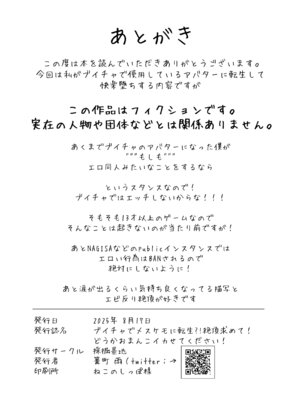 あとがき
この度は本を読んでいただきありがとうございます。
今回は私がブイチャで使用しているアバターに転生して
快楽堕ちする内容ですが
この作品はフィクションです。
実在の人物や団体などとは関係ありません。
あくまでブイチャのアバターになった僕が
"""もしも"""
エロ同人みたいなことをするなら
というスタンスなので!
ブイチャではエッチしないからな!!!
そもそも13才以上のゲームなので
そんなことは起きないのが当たり前ですが!
あとNAGISAなどのpublicインスタンスでは
エロい行為はBANされるので
絶対にしないように!
あと涙が出るくらい気持ち良くなってる描写と
エビ反り絶頂が好きです
発行日 2025年 8月17日
発行誌名 ブイチャでメスケモに転生?!絶頂求めて!
どうかおまんこイカせてください!
発行サークル 基地
発行者 雨(twitter:→
印刷所 ねこのしっぽ様